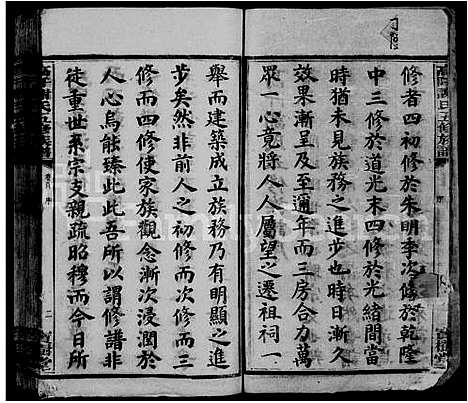 修者四初修於朱明季次修於乾隆
中三修於道光末四修於光緒間當
時猶未見族務之進步也時日漸久
效果漸呈及至通年而三房合力萬
眾一心竟將人人屬望之遷祠一
舉而建築成立族務乃有明顯之進
步矣然非前人之初修而二修三
修而四修使家族觀念漸次浸潤於
人心烏能臻此此吾所以謂修譜非
徒重世系宗支親疏昭穆而今日所
氏五修族譜
二